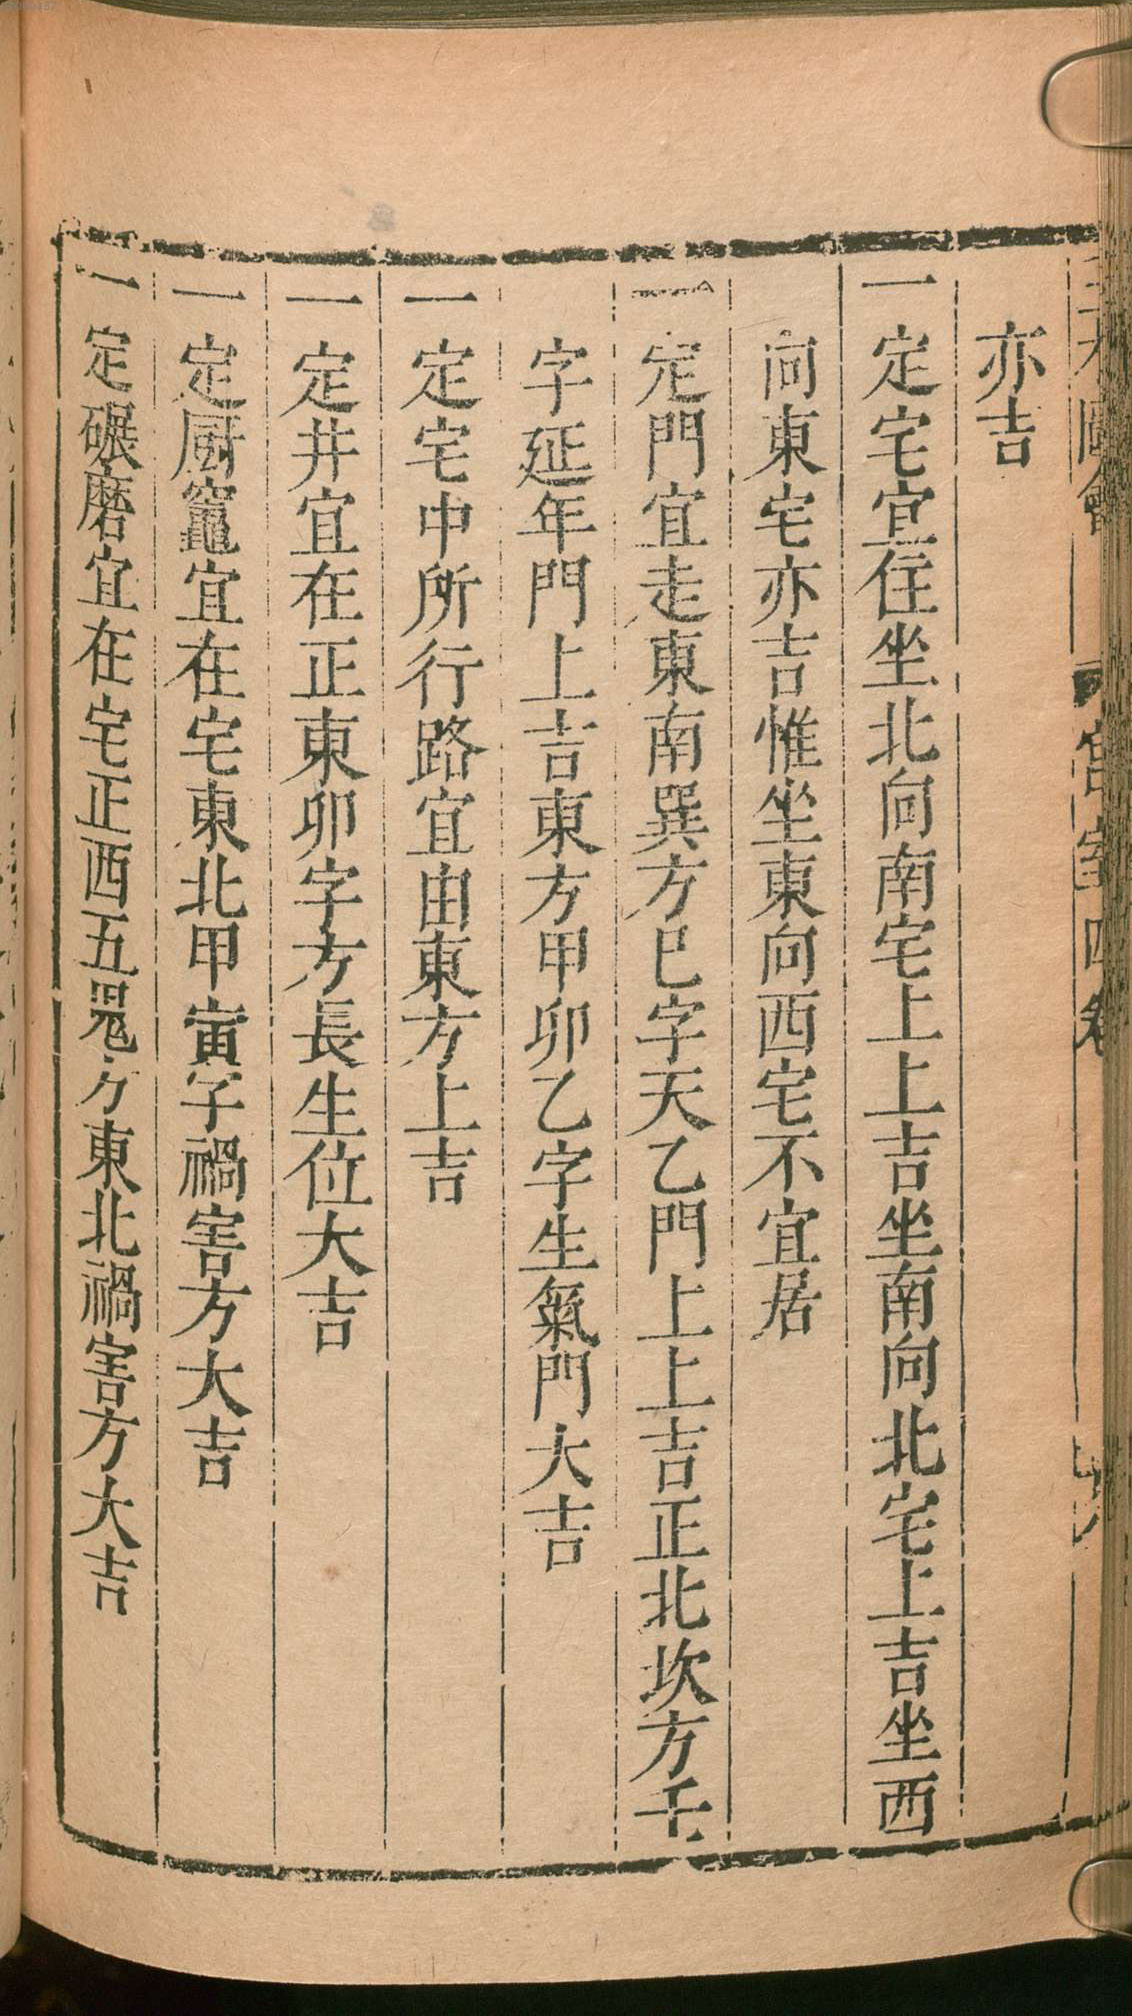 圖會 宮室四卷
亦吉
一定宅宜住坐北向南宅上上吉坐南向北宅上吉坐西
向東宅亦吉惟坐東向西宅不宜居
一定門宜走東南巽方巳字天乙門上上吉正北坎方壬
字延年門上吉東方甲卯乙字生氣門大吉
一定宅中所行路宜由東方上吉
一定井宜在正東卯字方長生位大吉
一定厨竈宜在宅東北甲寅字禍害方大吉
一定碾磨宜在宅正西五鬼方東北禍害方大吉